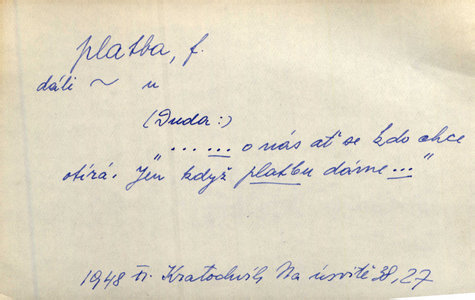 platba, f.
dáli ~ u
(Duda:)
"... ... o nás ať se kdo chce
otírá. Jen když platbu dáme ..."
1948 tř. Kratochvíl, Na úsvitě 38, 27